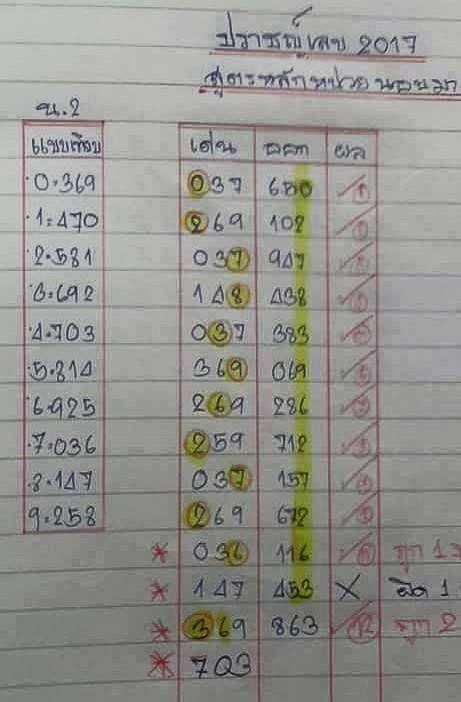 ปราชญ์เลข 2017
สูตรหลักหน่วย
น.2
แบบเทียบ เด่น ออก ผล
0.369 037 680
1.470 269 102
2.581 037 947
3.692 148 438
4.703 037 383
5.814 369 069
6.925 269 286
7.036 259 712
8.147 037 157
9.258 269 672
* 036 116 ถูก
* 147 453 X ผิด 1
* 369 863 ✓12 ถูก 2
* 703